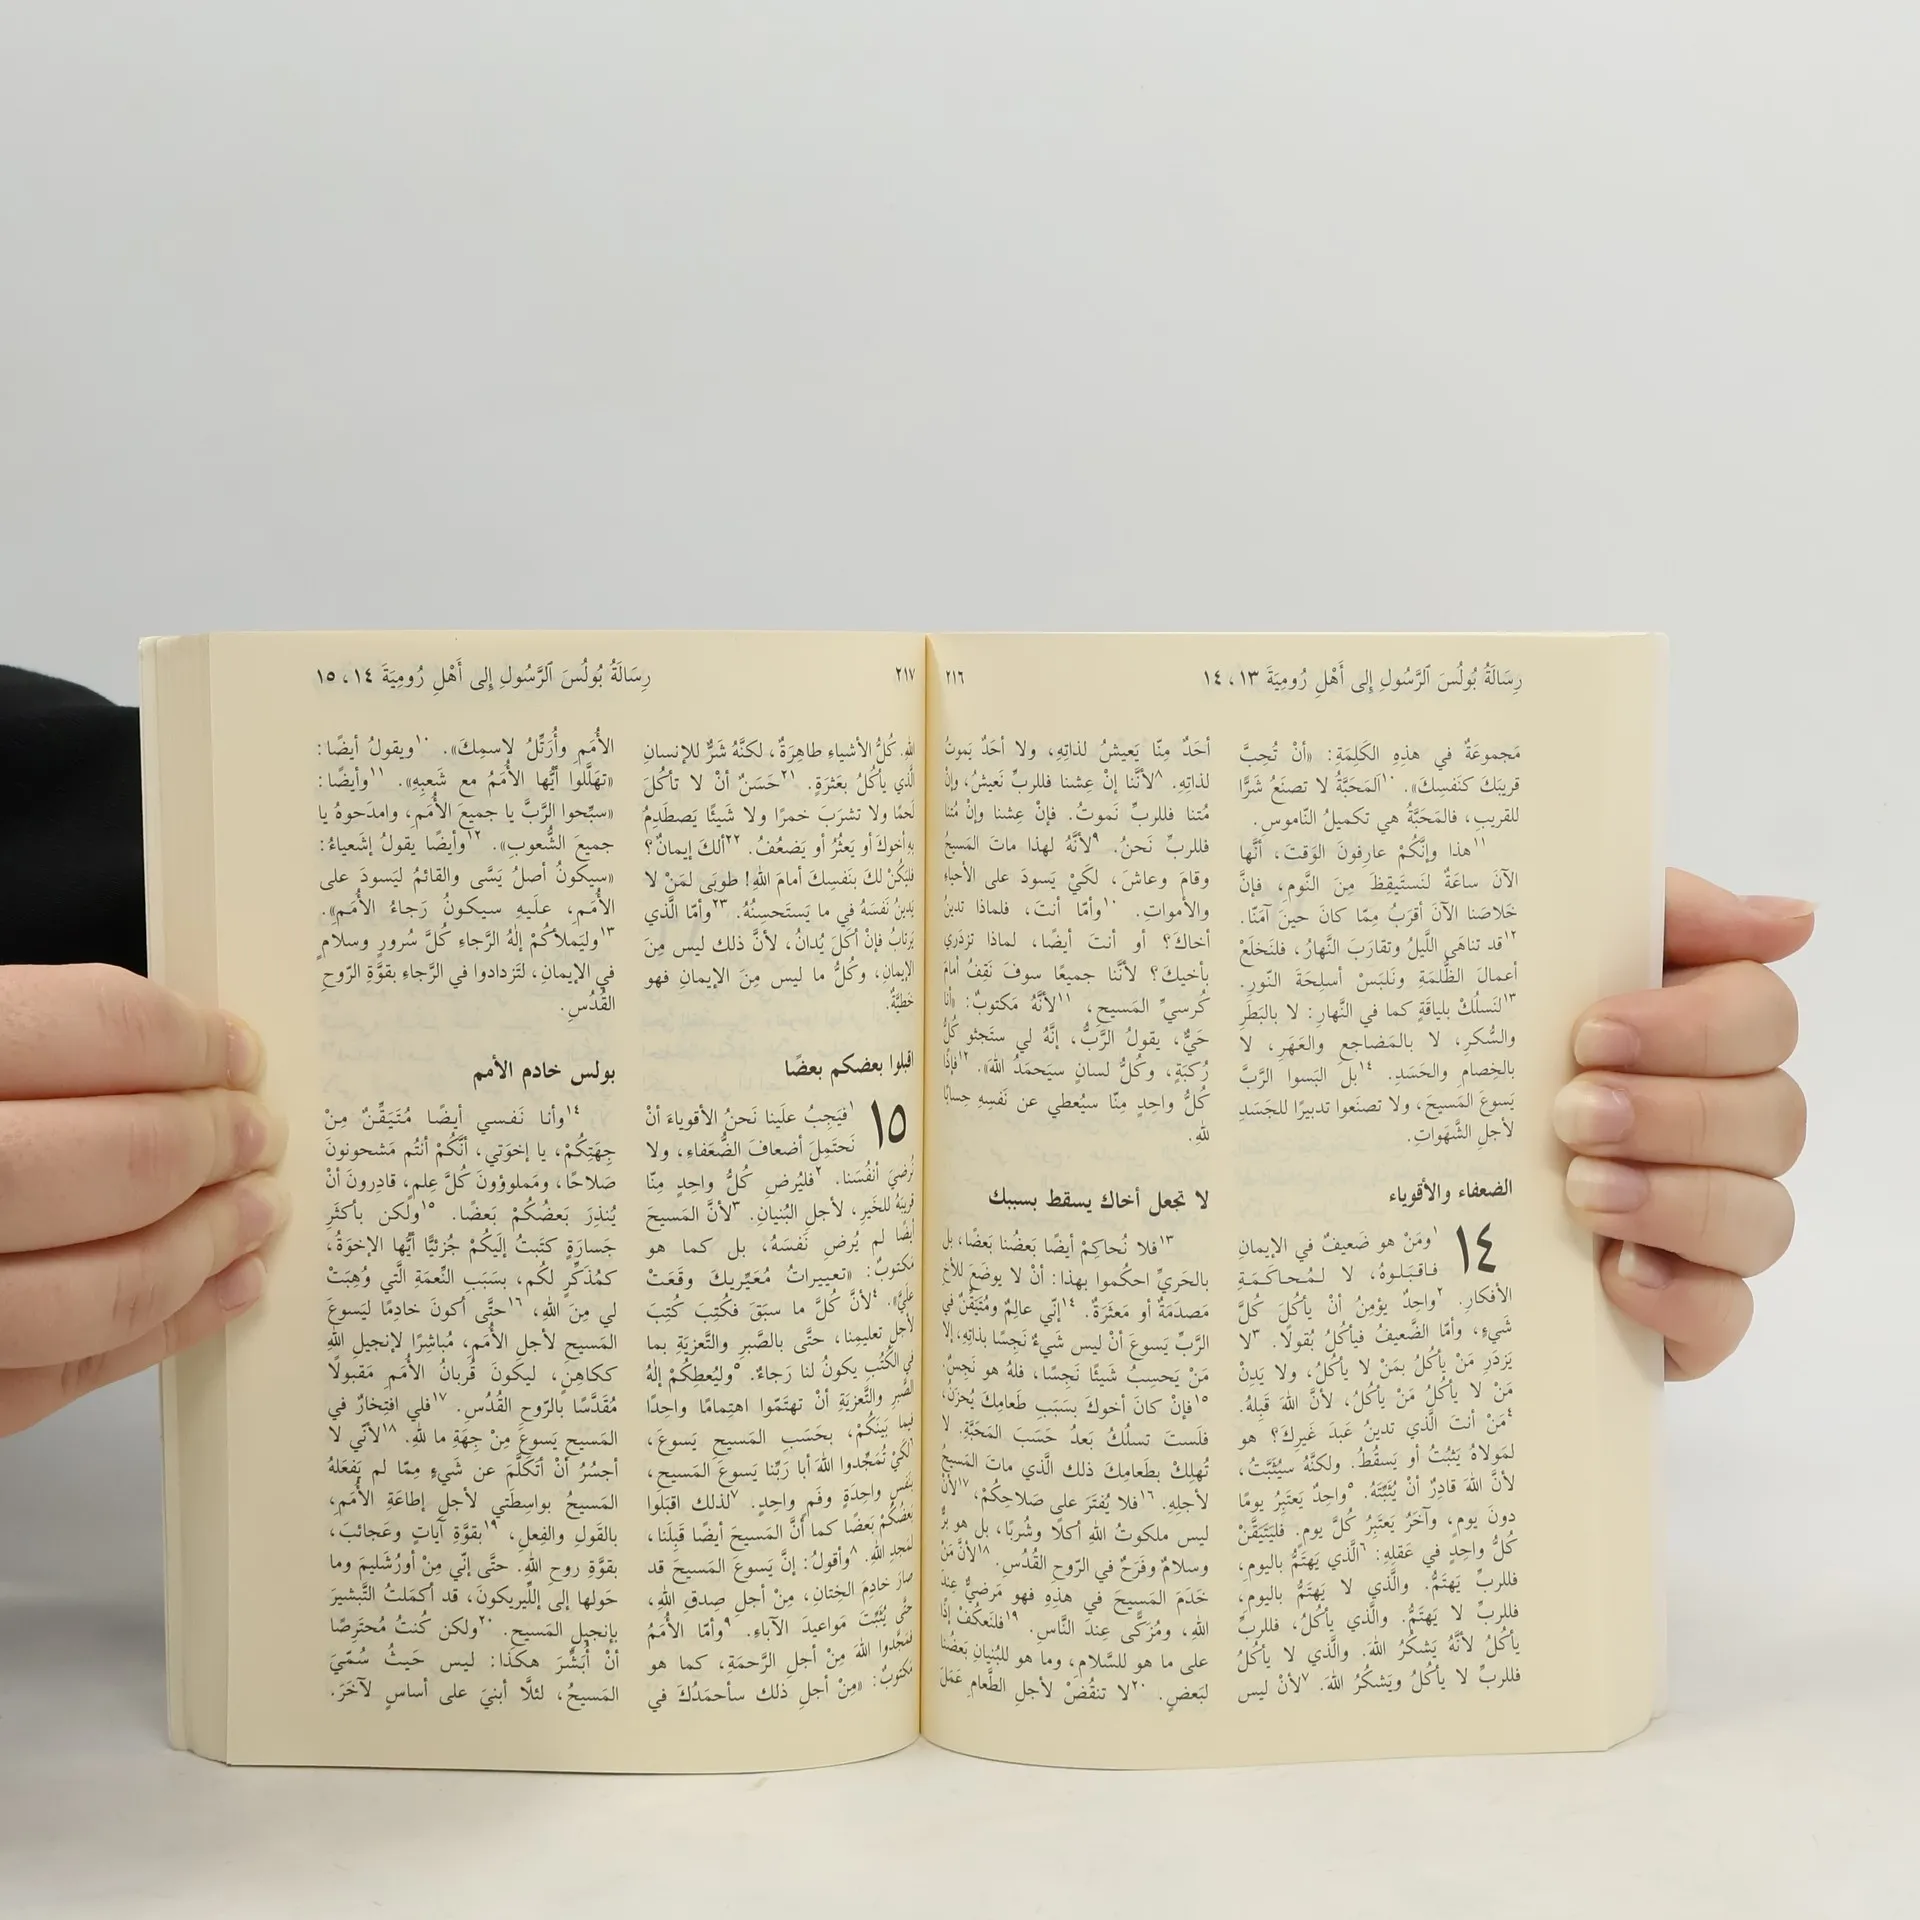 رِسَالَةُ بُولُسَ ٱلرَّسُولِ إِلى أَهْلِ رُومِيَةَ ١٣، ١٤
٢١٦
مَجموعَةٌ في هذِهِ الكَلِمَةِ: «أنْ تُحِبَّ
قريبَكَ كنَفسِكَ». ١٠اَلمَحَبَّةُ لا تصنَعُ شَرًّا
للقريبِ، فالمَحَبَّةُ هي تكميلُ النّاموسِ.
١١هذا وإنَّكُمْ عارِفونَ الوَقتَ، أنَّها
الآنَ ساعَةٌ لنَستَيقِظَ مِنَ النَّومِ، فإنَّ
خَلاصَنا الآنَ أقرَبُ مِمّا كانَ حينَ آمَنّا.
١٢قد تناهَى اللَّيلُ وتقارَبَ النَّهارُ، فلنَخلَعْ
أعمالَ الظُّلمَةِ ونَلبَسْ أسلِحَةَ النّورِ.
١٣لنَسلُكْ بلياقَةٍ كما في النَّهارِ: لا بالبَطَرِ
والسُّكرِ، لا بالمَضاجعِ والعَهَرِ، لا
بالخِصامِ والحَسَدِ. ١٤بل البَسوا الرَّبَّ
يَسوعَ المَسيحَ، ولا تصنَعوا تدبيرًا للجَسَدِ
لأجلِ الشَّهَواتِ.
الضعفاء والأقوياء
١٤ ١ومَنْ هو ضَعيفٌ في الإيمانِ
فاقبَلوهُ، لا لمُحاكَمَةِ
الأفكارِ. ٢واحِدٌ يؤمِنُ أنْ يأكُلَ كُلَّ
شَيءٍ، وأمّا الضَّعيفُ فيأكُلُ بُقولًا. ٣لا
يَزدَرِ مَنْ يأكُلُ بمَنْ لا يأكُلُ، ولا يَدِنْ
مَنْ لا يأكُلُ مَنْ يأكُلُ، لأنَّ اللهَ قَبِلهُ.
٤مَنْ أنتَ الَّذي تدينُ عَبدَ غَيرِكَ؟ هو
لمَولاهُ يَثبُتُ أو يَسقُطُ. ولكنَّهُ سيُثَبَّتُ،
لأنَّ اللهَ قادِرٌ أنْ يُثَبِّتَهُ. ٥واحِدٌ يَعتَبِرُ يومًا
دونَ يومٍ، وآخَرُ يَعتَبِرُ كُلَّ يومٍ. فليَتَيَقَّنْ
كُلُّ واحِدٍ في عَقلِهِ: ٦الَّذي يَهتَمُّ باليومِ،
فللرَّبِّ يَهتَمُّ. والَّذي لا يَهتَمُّ باليومِ،
فللرَّبِّ لا يَهتَمُّ. والَّذي يأكُلُ، فللرَّبِّ
يأكُلُ لأنَّهُ يَشكُرُ اللهَ. والَّذي لا يأكُلُ
فللرَّبِّ لا يأكُلُ ويَشكُرُ اللهَ. ٧لأنْ ليس
أحَدٌ مِنّا يَعيشُ لذاتِهِ، ولا أحَدٌ يَموتُ
لذاتِهِ. ٨لأنَّنا إنْ عِشنا فللرَّبِّ نَعيشُ، وإنْ
مُتنا فللرَّبِّ نَموتُ. فإنْ عِشنا وإنْ مُتنا
فللرَّبِّ نَحنُ. ٩لأنَّهُ لهذا ماتَ المَسيحُ
وقامَ وعاشَ، لكَيْ يَسودَ على الأحياءِ
والأمواتِ. ١٠وأمّا أنتَ، فلماذا تدينُ
أخاكَ؟ أو أنتَ أيضًا، لماذا تزدَري
بأخيكَ؟ لأنَّنا جميعًا سوفَ نَقِفُ أمامَ
كُرسيِّ المَسيحِ، ١١لأنَّهُ مَكتوبٌ: «أنا
حَيٌّ، يقولُ الرَّبُّ، إنَّهُ لي ستَجثو كُلُّ
رُكبَةٍ، وكُلُّ لسانٍ سيَحمَدُ اللهَ». ١٢فإذًا
كُلُّ واحِدٍ مِنّا سيُعطي عن نَفسِهِ حِسابًا
للهِ.
لا تجعل أخاك يسقط بسببك
١٣فلا نُحاكِمْ أيضًا بَعضُنا بَعضًا، بل
بالحَريِّ احكُموا بهذا: أنْ لا يوضَعَ للأخِ
مَصدَمَةٌ أو مَعثَرَةٌ. ١٤إنّي عالِمٌ ومُتَيَقِّنٌ في
الرَّبِّ يَسوعَ أنْ ليس شَيءٌ نَجِسًا بذاتِهِ، إلا
مَنْ يَحسِبُ شَيئًا نَجِسًا، فلهُ هو نَجِسٌ.
١٥فإنْ كانَ أخوكَ بسَبَبِ طَعامِكَ يُحزَنُ،
فلَستَ تسلُكُ بَعدُ حَسَبَ المَحَبَّةِ. لا
تُهلِكْ بطَعامِكَ ذلك الَّذي ماتَ المَسيحُ
لأجلِهِ. ١٦فلا يُفتَرَ على صَلاحِكُمْ، ١٧لأنْ
ليس ملكوتُ اللهِ أكلًا وشُربًا، بل هو برٌّ
وسلامٌ وفَرَحٌ في الرّوحِ القُدُسِ. ١٨لأنَّ مَنْ
خَدَمَ المَسيحَ في هذِهِ فهو مَرضيٌّ عِندَ
اللهِ، ومُزَكًّى عِندَ النَّاسِ. ١٩فلنَعكُفْ إذًا
على ما هو للسَّلامِ، وما هو للبُنيانِ بَعضُنا
لبَعضٍ. ٢٠لا تنقُضْ لأجلِ الطَّعامِ عَمَلَ
٢١٧
رِسَالَةُ بُولُسَ ٱلرَّسُولِ إِلى أَهْلِ رُومِيَةَ ١٤، ١٥
اللهِ. كُلُّ الأشياءِ طاهِرَةٌ، لكنَّهُ شَرٌّ للإنسانِ
الَّذي يأكُلُ بعَثرَةٍ. ٢١حَسَنٌ أنْ لا تأكُلَ
لَحمًا ولا تشرَبَ خمرًا ولا شَيئًا يَصطَدِمُ
بهِ أخوكَ أو يَعثُرُ أو يَضعُفُ. ٢٢ألكَ إيمانٌ؟
فليَكُنْ لكَ بنَفسِكَ أمامَ اللهِ! طوبَى لمَنْ لا
يَدينُ نَفسَهُ في ما يَستَحسِنُهُ. ٢٣وأمّا الَّذي
يَرتابُ فإنْ أكَلَ يُدانُ، لأنَّ ذلك ليس مِنَ
الإيمانِ، وكُلُّ ما ليس مِنَ الإيمانِ فهو
خَطيَّةٌ.
اقبلوا بعضكم بعضًا
١٥ ١فيَجِبُ علَينا نَحنُ الأقوياءَ أنْ
نَحتَمِلَ أضعافَ الضُّعَفاءِ، ولا
نُرضيَ أنفُسَنا. ٢فليُرضِ كُلُّ واحِدٍ مِنّا
قريبَهُ للخَيرِ، لأجلِ البُنيانِ. ٣لأنَّ المَسيحَ
أيضًا لم يُرضِ نَفسَهُ، بل كما هو
مَكتوبٌ: «تعييراتُ مُعَيِّريكَ وقَعَتْ
علَيَّ». ٤لأنَّ كُلَّ ما سبَقَ فكُتِبَ كُتِبَ
لأجلِ تعليمِنا، حتَّى بالصَّبرِ والتَّعزيَةِ بما
في الكُتُبِ يكونُ لنا رَجاءٌ. ٥وليُعطِكُمْ إلهُ
الصَّبرِ والتَّعزيَةِ أنْ تهتَمّوا اهتِمامًا واحِدًا
فيما بَينَكُمْ، بحَسَبِ المَسيحِ يَسوعَ،
٦لكَيْ تُمَجِّدوا اللهَ أبا رَبِّنا يَسوعَ المَسيحِ،
بنَفسٍ واحِدَةٍ وفَمٍ واحِدٍ. ٧لذلك اقبَلوا
بَعضُكُمْ بَعضًا كما أنَّ المَسيحَ أيضًا قَبِلَنا،
لمَجدِ اللهِ. ٨وأقولُ: إنَّ يَسوعَ المَسيحَ قد
صارَ خادِمَ الخِتانِ، مِنْ أجلِ صِدقِ اللهِ،
حتَّى يُثَبِّتَ مَواعيدَ الآباءِ. ٩وأمّا الأُمَمُ
فمَجَّدوا اللهَ مِنْ أجلِ الرَّحمَةِ، كما هو
مَكتوبٌ: «مِنْ أجلِ ذلك سأحمَدُكَ في
الأُمَمِ وأُرَتِّلُ لاسمِكَ». ١٠ويقولُ أيضًا:
«تهَلَّلوا أيُّها الأُمَمُ مع شَعبِهِ». ١١وأيضًا:
«سبِّحوا الرَّبَّ يا جميعَ الأُمَمِ، وامدَحوهُ يا
جميعَ الشُّعوبِ». ١٢وأيضًا يقولُ إشَعياءُ:
«سيكونُ أصلُ يَسَّى والقائمُ ليَسودَ على
الأُمَمِ، علَيهِ سيكونُ رَجاءُ الأُمَمِ».
١٣وليَملأكُمْ إلهُ الرَّجاءِ كُلَّ سُرورٍ وسلامٍ
في الإيمانِ، لتَزدادوا في الرَّجاءِ بقوَّةِ الرّوحِ
القُدُسِ.
بولس خادم الأمم
١٤وأنا نَفسي أيضًا مُتَيَقِّنٌ مِنْ
جِهَتِكُمْ، يا إخوَتي، أنَّكُمْ أنتُم مَشحونونَ
صَلاحًا، ومَملوؤونَ كُلَّ عِلمٍ، قادِرونَ أنْ
يُنذِرَ بَعضُكُمْ بَعضًا. ١٥ولكن بأكثَرِ
جَسارَةٍ كتَبتُ إلَيكُمْ جُزئيًّا أيُّها الإخوَةُ،
كمُذَكِّرٍ لكُم، بسَبَبِ النِّعمَةِ الَّتي وُهِبَتْ
لي مِنَ اللهِ، ١٦حتَّى أكونَ خادِمًا ليَسوعَ
المَسيحِ لأجلِ الأُمَمِ، مُباشِرًا لإنجيلِ اللهِ
ككاهِنٍ، ليكونَ قُربانُ الأُمَمِ مَقبولًا
مُقَدَّسًا بالرّوحِ القُدُسِ. ١٧فلي افتِخارٌ في
المَسيحِ يَسوعَ مِنْ جِهَةِ ما للهِ. ١٨لأنّي لا
أجسُرُ أنْ أتكلَّمَ عن شَيءٍ مِمّا لم يَفعَلهُ
المَسيحُ بواسِطَتي لأجلِ إطاعَةِ الأُمَمِ،
بالقَولِ والفِعلِ، ١٩بقوَّةِ آياتٍ وعَجائبَ،
بقوَّةِ روحِ اللهِ. حتَّى إنّي مِنْ أورُشَليمَ وما
حَولها إلى إللّيريكونَ، قد أكمَلتُ التَّبشيرَ
بإنجيلِ المَسيحِ. ٢٠ولكن كُنتُ مُحتَرِصًا
أنْ أُبَشِّرَ هكذا: ليس حَيثُ سُمّيَ
المَسيحُ، لئلَّا أبنيَ على أساسٍ لآخَرَ.